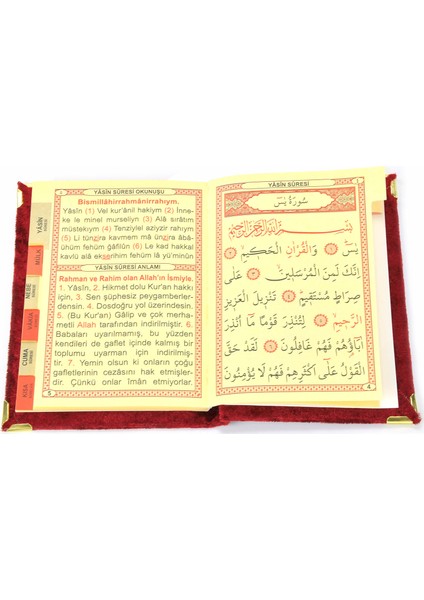 YÂSİN SÛRESİ OKUNUŞU
Bismillâhirrahmânirrahıym.
Yâsîn (1) Vel kur'ânil hakiym (2) İnne-
ke le minel murseliyn (3) Alâ sırâtım
müstekıym (4) Tenziylel aziyzir rahıym
(5) Li tünzira kavmem mâ ünzira âbâ-
ühüm fehüm gâfilûn (6) Le kad hakkal
kavlü alâ ekserihim fehüm lâ yü'minûn
YÂSİN SÛRESİ ANLAMI
Rahman ve Rahim olan Allah'ın İsmiyle.
1. Yâsîn, 2. Hikmet dolu Kur'an hakkı
için, 3. Sen şüphesiz peygamberler-
densin. 4. Dosdoğru yol üzerindesin.
5. (Bu Kur'an) Gâlip ve çok merha-
metli Allah tarafından indirilmiştir. 6.
Babaları uyarılmamış, bu yüzden
kendileri de gaflet içinde kalmış bir
toplumu uyarman için indirilmiş-
tir. 7. Yemin olsun ki onların çoğu
gafletlerinin cezasını hak etmişler-
dir. Çünkü onlar îmân etmiyorlar.
5
YÂSİN
MÜLK
NEBE
CUMA
YÂSİN SÛRESİ
سُورَةُ يٰسٓ
بِسْمِ اللّٰهِ الرَّحْمٰنِ الرَّحِيمِ
يٰسٓ ﴿١﴾ وَالْقُرْاٰنِ الْحَكِيمِ ﴿٢﴾
اِنَّكَ لَمِنَ الْمُرْسَلِينَ ﴿٣﴾ عَلٰى
صِرَاطٍ مُسْتَقِيمٍ ﴿٤﴾ تَنْزِيلَ الْعَزِيزِ
الرَّحِيمِ ﴿٥﴾ لِتُنْذِرَ قَوْمًا مَٓا اُنْذِرَ
اٰبَٓاؤُ۬هُمْ فَهُمْ غَافِلُونَ ﴿٦﴾ لَقَدْ حَقَّ
الْقَوْلُ عَلٰٓى اَكْثَرِهِمْ فَهُمْ لَا يُؤْمِنُونَ
4